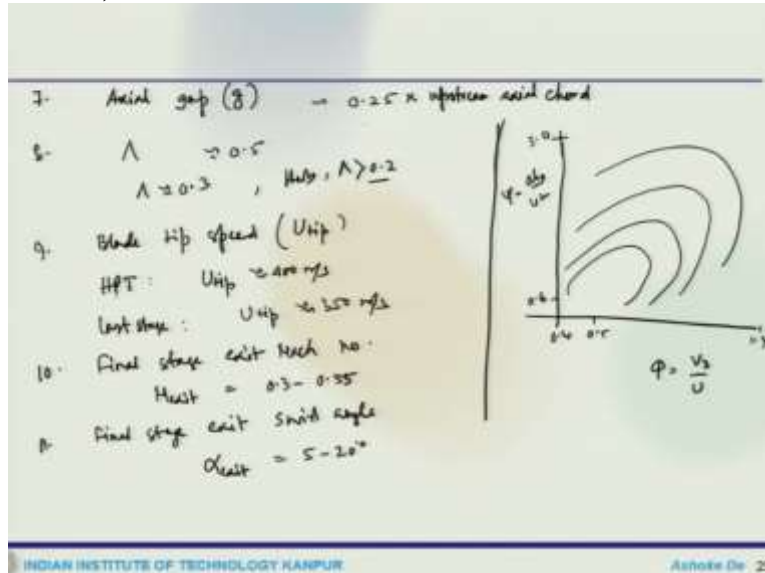 7. Axial gap (g) → 0.25 x upstream axial chord
8. Λ ≈ 0.5
Λ ≈ 0.3 , Hub, Λ > 0.2
9. Blade tip speed (Utip)
HPT : Utip ≈ 400 m/s
Last stage : Utip ≈ 350 m/s
10. Final stage exit Mach no.
Mexit = 0.3 - 0.35
Final stage exit swirl angle
αexit = 5 - 20°
3.0
ψ =
0.4
φ = 
U
INDIAN INSTITUTE OF TECHNOLOGY KANPUR
Ashoke De 2